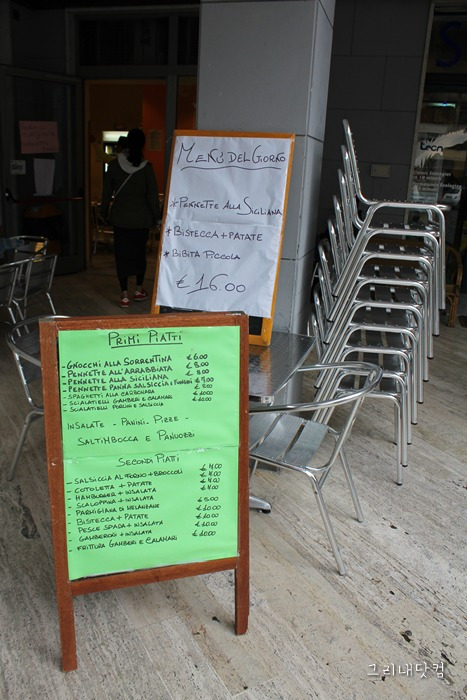 MENÙ DEL GIORNO
* PENNETTE ALLA SICILIANA
* BISTECCA + PATATE
* BIBITA PICCOLA
€ 16.00
PRIMI PIATTI
- GNOCCHI ALLA SORRENTINA € 6.00
- PENNETTE ALL'ARRABBIATA € 8.00
- PENNETTE ALLA SICILIANA € 8.00
- PENNETTE PANNA SALSICCIA E FUNGHI
- SPAGHETTI ALLA CARBONARA
- SCIALATIELLI GAMBERI E CALAMARI € 10.00
- SCIALATIELLI PORCINI E SALSICCIA
INSALATE - PANINI - PIZZE -
SALTIMBOCCA E PANUOZZI
SECONDI PIATTI
- SALSICCIA AL FORNO + BROCCOLI
- COTOLETTA + PATATE
- HAMBURGER + INSALATA
- SCALOPPINA + INSALATA
- PARMIGIANA DI MELANZANE
- BISTECCA + PATATE € 10.00
- PESCE SPADA + INSALATA € 10.00
- GAMBERONI + INSALATA € 10.00
- FRITTURA GAMBERI E CALAMARI
그리내닷컴